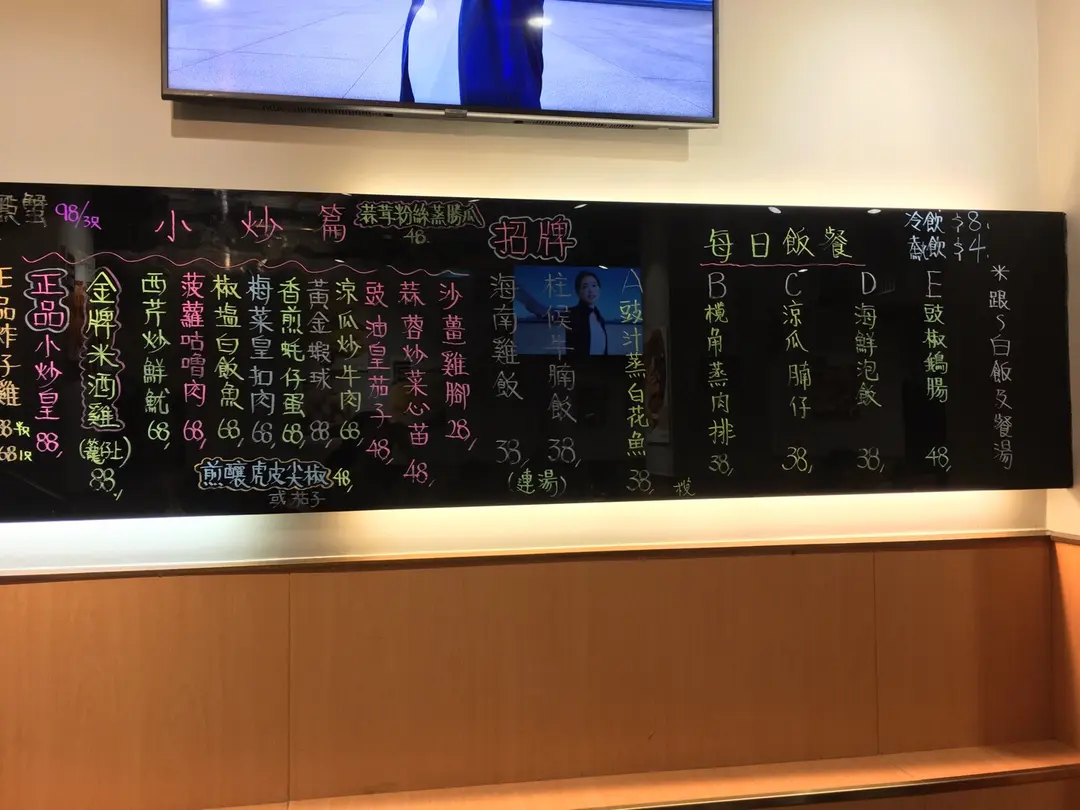 蟹 98/3隻
小炒篇
蒜茸粉絲蒸勝瓜 48.
招牌
每日飯餐
冷飲 $8.
熱飲 $4.
正品炸子雞
68 1隻
正品小炒皇 88,
金牌米酒雞 (籠仔上) 88,
西芹炒鮮魷 68,
菠蘿咕嚕肉 68,
椒塩白飯魚 68,
梅菜皇扣肉 68,
香煎蚝仔蛋 68,
黃金蝦球 88
涼瓜炒牛肉 68,
豉油皇茄子 48,
蒜蓉炒菜心苗 48,
沙薑雞腳 28,
煎釀虎皮尖椒 48,
或茄子
海南雞飯 38,
柱候牛腩飯 38,
(連湯)
A 豉汁蒸白花魚 38,
B 欖角蒸肉排 38,
C 涼瓜腩仔 38,
D 海鮮泡飯 38,
E 豉椒鵝腸 48,
*跟白飯及餐湯
欖